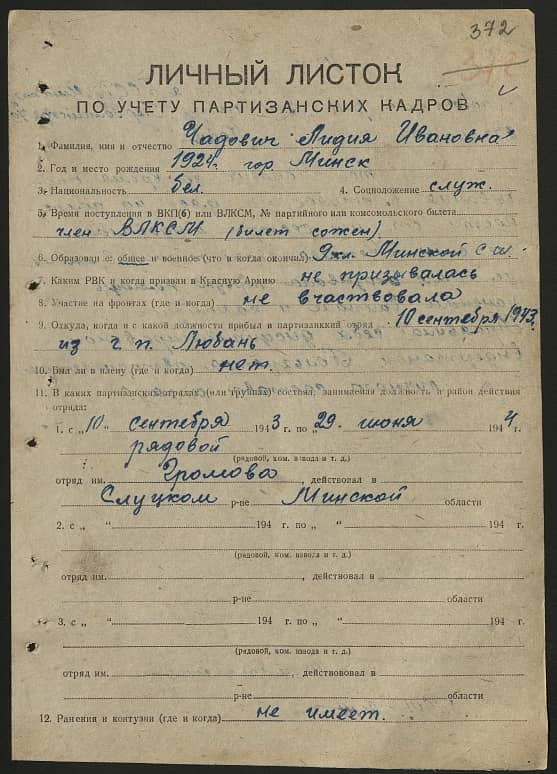 372
ЛИЧНЫЙ ЛИСТОК
ПО УЧЕТУ ПАРТИЗАНСКИХ КАДРОВ
1. Фамилия, имя и отчество Чадович Лидия Ивановна
2. Год и место рождения 1924. гор. Минск
3. Национальность бел. 4. Соцположение служ.
5. Время поступления в ВКП(б) или ВЛКСМ, № партийного или комсомольского билета
член ВЛКСМ (билет сожжен)
6. Образование: общее и военное (что и когда окончил) 9 кл. Минской с. ш.
7. Каким РВК и когда призван в Красную Армию не призывалась
8. Участие на фронтах (где и когда) не участвовала
9. Откуда, когда и с какой должности прибыл в партизанский отряд 10 сентября 1943.
из г. п. Любань
10. Был ли в плену (где и когда) нет.
11. В каких партизанских отрядах (или группах) состоял, занимаемая должность и район действия
отряда:
1. с „10" сентября 1943 г. по „29. июня 1944 г.
рядовой
(рядовой, ком. взвода и т. д.)
отряд им. Громова, действовал в
Слуцком р-не Минской области
2. с „ " 194 г. по „ " 194 г.
(рядовой, ком. взвода и т. д.)
отряд им. , действовал в
р-не области
3. с „ " 194 г. по „ " 194 г.
(рядовой, ком. взвода и т. д.)
отряд им. , действовал в
р-не области
12. Ранения и контузии (где и когда) не имеет.